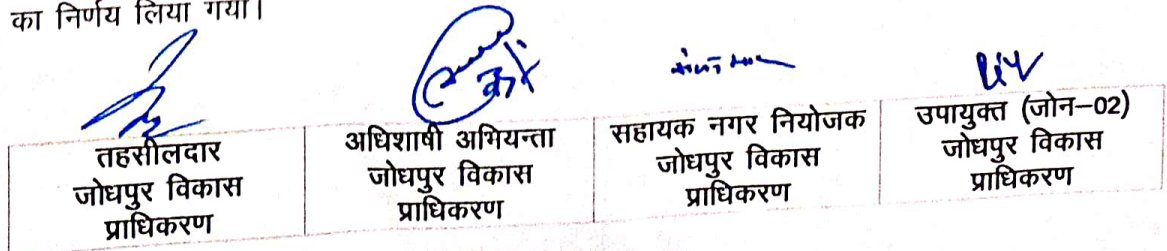 का निर्णय लिया गया।
तहसीलदार
जोधपुर विकास
प्राधिकरण
अधिशाषी अभियन्ता
जोधपुर विकास
प्राधिकरण
सहायक नगर नियोजक
जोधपुर विकास
प्राधिकरण
उपायुक्त (जोन–02)
जोधपुर विकास
प्राधिकरण